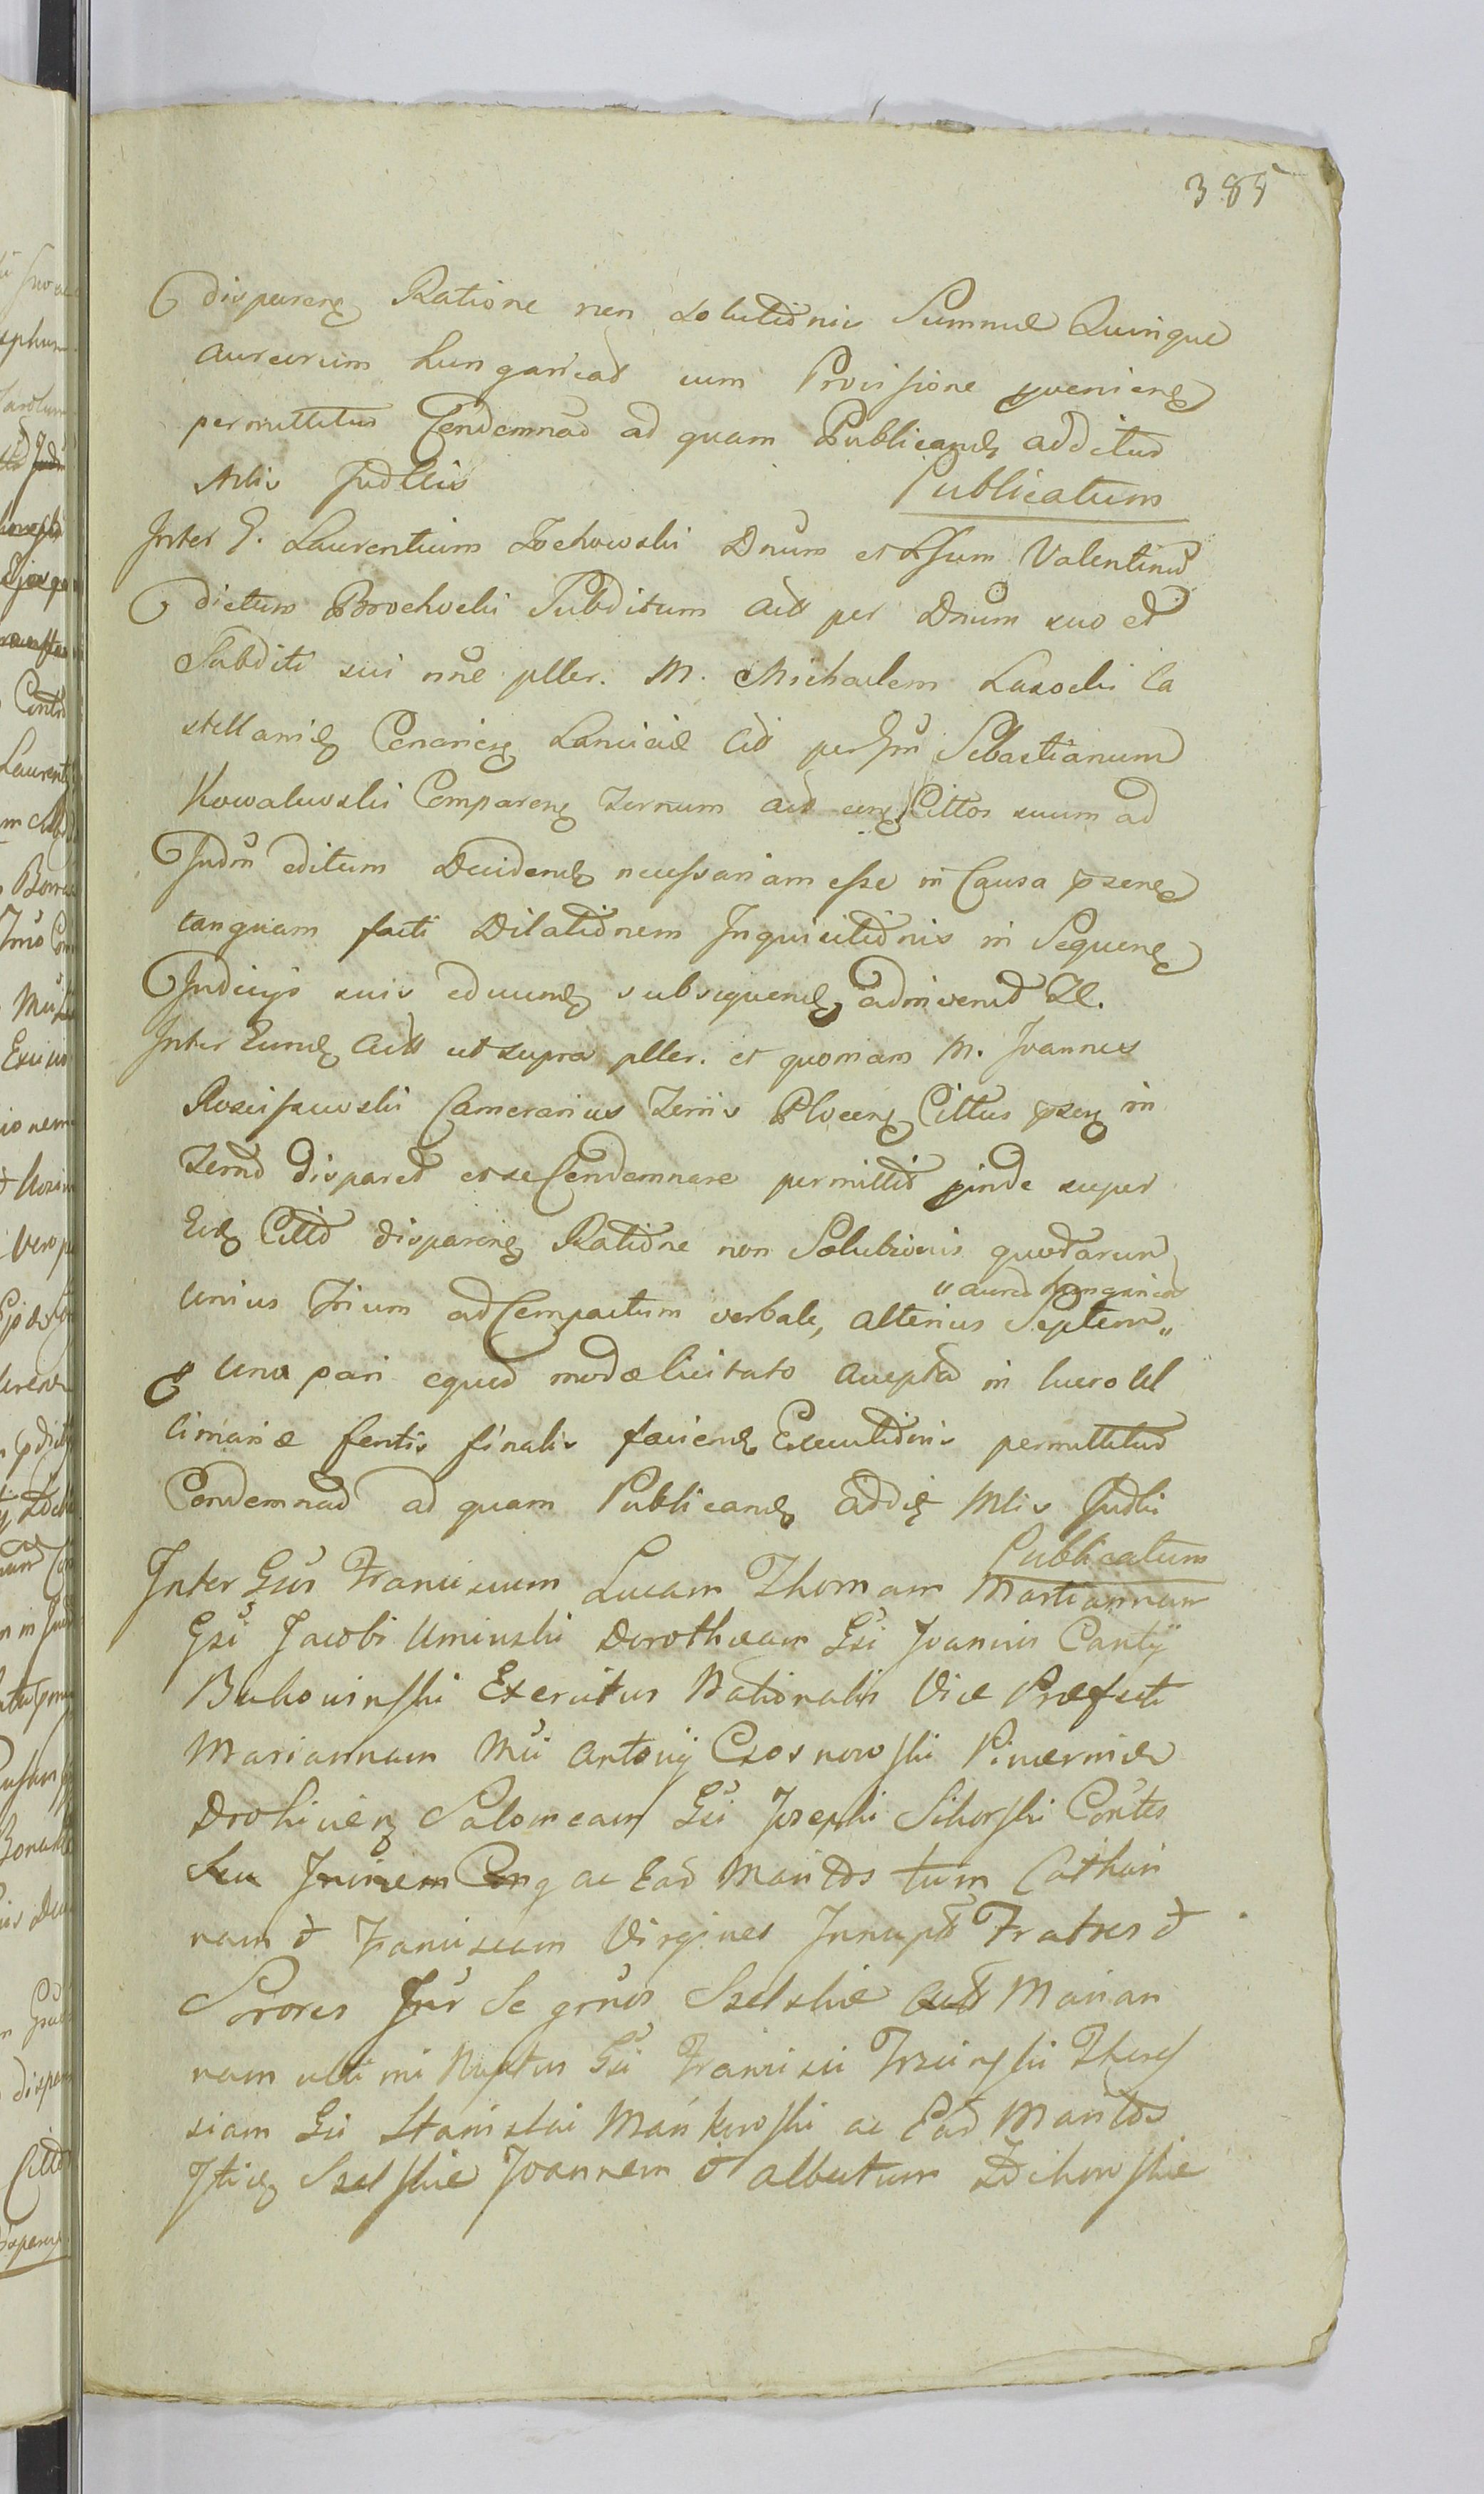 385
disparen Ratione non Solutionis Summæ Quinque
aureorum hungarical cum Provisione proveniens
permittitur Condemnad ad quam Publicand additur
Mlis Judllis Publicatum
Inter G. Laurentium Zochowski Dnum et Lsum Valentinu
dictum Brochocki Subditum Actt per Dnum suo et
Subditi sui nne pller. M. Michaelem Lasocki Ca
stellanid Cit per Sebastianum
Kowalewski Comparen Zernum act Cittos suum ad
Judm editum Deciden necessariam esse in Causa psene
tanquam facti Dilationem Inquisitionis in Sequene
Judicys suis subsequend adinvend
Inter Eund Actt ut supra pller. et quoniam M. Joannes
Rosciszewski Camerarius Terris Plocen Cittus psen in
Termo dispared et se Condemnare permittit pinde super
Eid Citto disparen Ratione non Solutionis quotarum
" aureo hungarical
unius Trium ad Compactum verbale, alterius Septem "
una pari equo modo licitato acepta in lucro Ul
timariæ fentis finalis faciend Executionis permittitur
Condemnad ad quam Publicand addit Mlis Judli
Publicatum
Inter Gsos Franciscum Lucam Thomam Martiannum
Gsi Jacobi Uminski Dorotheam Gsi Joannis Canty
Bukowinski Exercitus Nationalis Vice Præfecti
Mariannam Mci Antonij Czosnowski Pincernidæ
Drohicien Salomeam Gsi Josephi Sikorski Contes
Seu ac Ead Maritos tum Cathari
nam et Franciscam Virgines Innupt Fratres et
Sorores Inr Se grnos Szelskie Actt Marian
nam ultimi Nuptus Gsi Francisci Trzcinski There
siam Gsi Stanislai Mańkowski ac Ead Maritos
Itid Szelskie Joannem et albertum Żochowskie